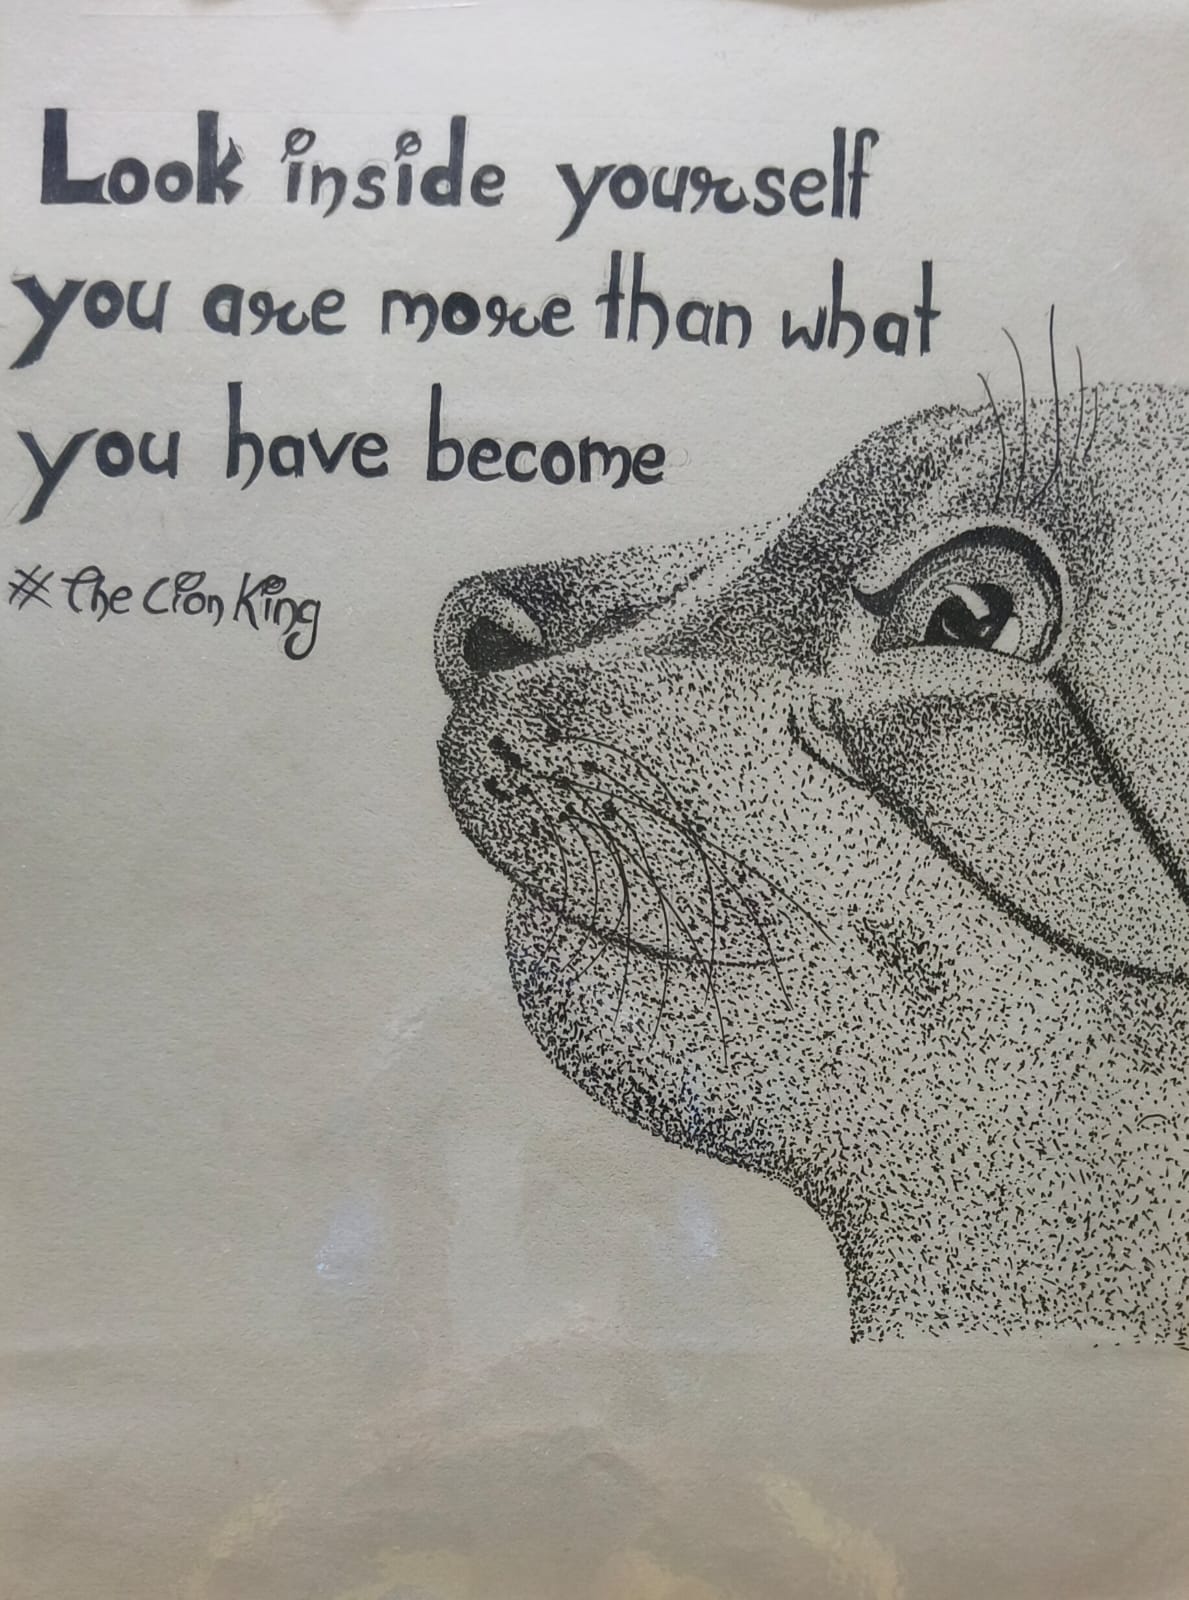 Look inside yourself
you are more than what
you have become
#the Lion King